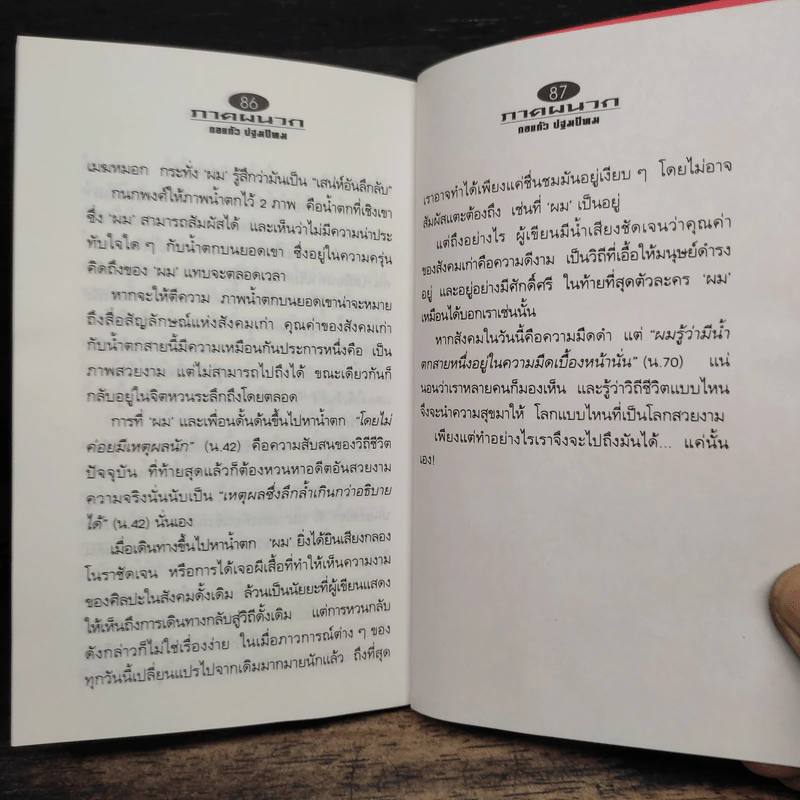 86
ภาคผนวก
กอแก้ว ปฐมปัทมะ
เมฆหมอก กระทั่ง ‘ผม’ รู้สึกว่ามันเป็น “เสน่ห์อันลึกลับ”
กนกพงศ์ให้ภาพน้ำตกไว้ 2 ภาพ คือน้ำตกที่เชิงเขา
ซึ่ง ‘ผม’ สามารถสัมผัสได้ และเห็นว่าไม่มีความน่าประ
ทับใจใด ๆ กับน้ำตกบนยอดเขา ซึ่งอยู่ในความครุ่น
คิดถึงของ ‘ผม’ แทบจะตลอดเวลา
หากจะให้ตีความ ภาพน้ำตกบนยอดเขาน่าจะหมาย
ถึงสื่อสัญลักษณ์แห่งสังคมเก่า คุณค่าของสังคมเก่า
กับน้ำตกสายนี้มีความเหมือนกันประการหนึ่งคือ เป็น
ภาพสวยงาม แต่ไม่สามารถไปถึงได้ ขณะเดียวกันก็
กลับอยู่ในจิตหวนระลึกถึงโดยตลอด
การที่ ‘ผม’ และเพื่อนดั้นด้นขึ้นไปหาน้ำตก “โดยไม่
ค่อยมีเหตุผลนัก” (น.42) คือความสับสนของวิถีชีวิต
ปัจจุบัน ที่ท้ายสุดแล้วก็ต้องหวนหาอดีตอันสวยงาม
ความจริงนั่นนับเป็น “เหตุผลซึ่งลึกล้ำเกินกว่าอธิบาย
ได้” (น.42) นั่นเอง
เมื่อเดินทางขึ้นไปหาน้ำตก ‘ผม’ ยิ่งได้ยินเสียงกลอง
โนราชัดเจน หรือการได้เจอผีเสื้อที่ทำให้เห็นความงาม
ของศิลปะในสังคมดั้งเดิม ล้วนเป็นนัยยะที่ผู้เขียนแสดง
ให้เห็นถึงการเดินทางกลับสู่วิถีดั้งเดิม แต่การหวนกลับ
ดังกล่าวก็ไม่ใช่เรื่องง่าย ในเมื่อภาวการณ์ต่าง ๆ ของ
ทุกวันนี้เปลี่ยนแปรไปจากเดิมมากมายนักแล้ว ถึงที่สุด
87
ภาคผนวก
กอแก้ว ปฐมปัทมะ
เราอาจทำได้เพียงแค่ชื่นชมมันอยู่เงียบ ๆ โดยไม่อาจ
สัมผัสแตะต้องถึง เช่นที่ ‘ผม’ เป็นอยู่
แต่ถึงอย่างไร ผู้เขียนมีน้ำเสียงชัดเจนว่าคุณค่า
ของสังคมเก่าคือความดีงาม เป็นวิถีที่เอื้อให้มนุษย์ดำรง
อยู่ และอยู่อย่างมีศักดิ์ศรี ในท้ายที่สุดตัวละคร ‘ผม’
เหมือนได้บอกเราเช่นนั้น
หากสังคมในวันนี้คือความมืดดำ แต่ “ผมรู้ว่ามีน้ำ
ตกสายหนึ่งอยู่ในความมืดเบื้องหน้านั่น” (น.70) แน่
นอนว่าเราหลายคนก็มองเห็น และรู้ว่าวิถีชีวิตแบบไหน
จึงจะนำความสุขมาให้ โลกแบบไหนที่เป็นโลกสวยงาม
เพียงแต่ทำอย่างไรเราจึงจะไปถึงมันได้... แค่นั้น
เอง!